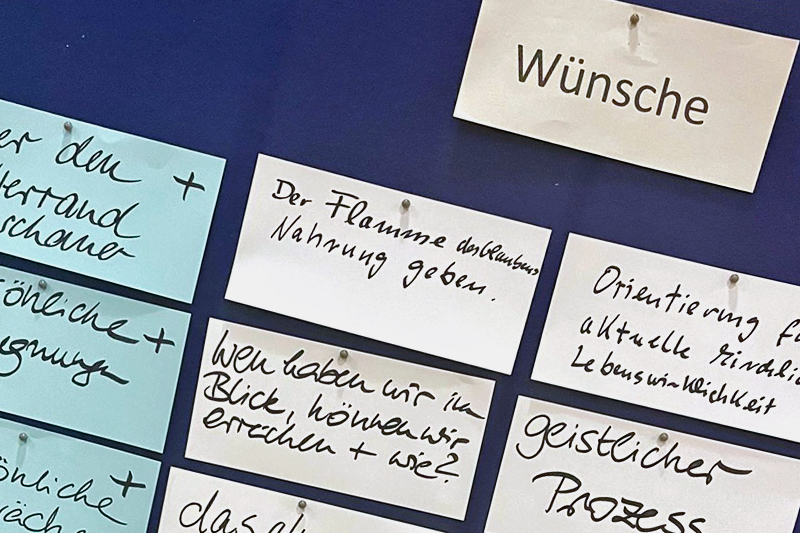 Wünsche
er den +
llerrand
schauer
önliche +
gnungen
önliche +
Der Flamme des Glaubens
Nahrung geben.
Wen haben wir im
Blick, können wir
erreichen + wie?
Orientierung
aktuelle
Lebenswirklichkeit
geistlicher
Prozess